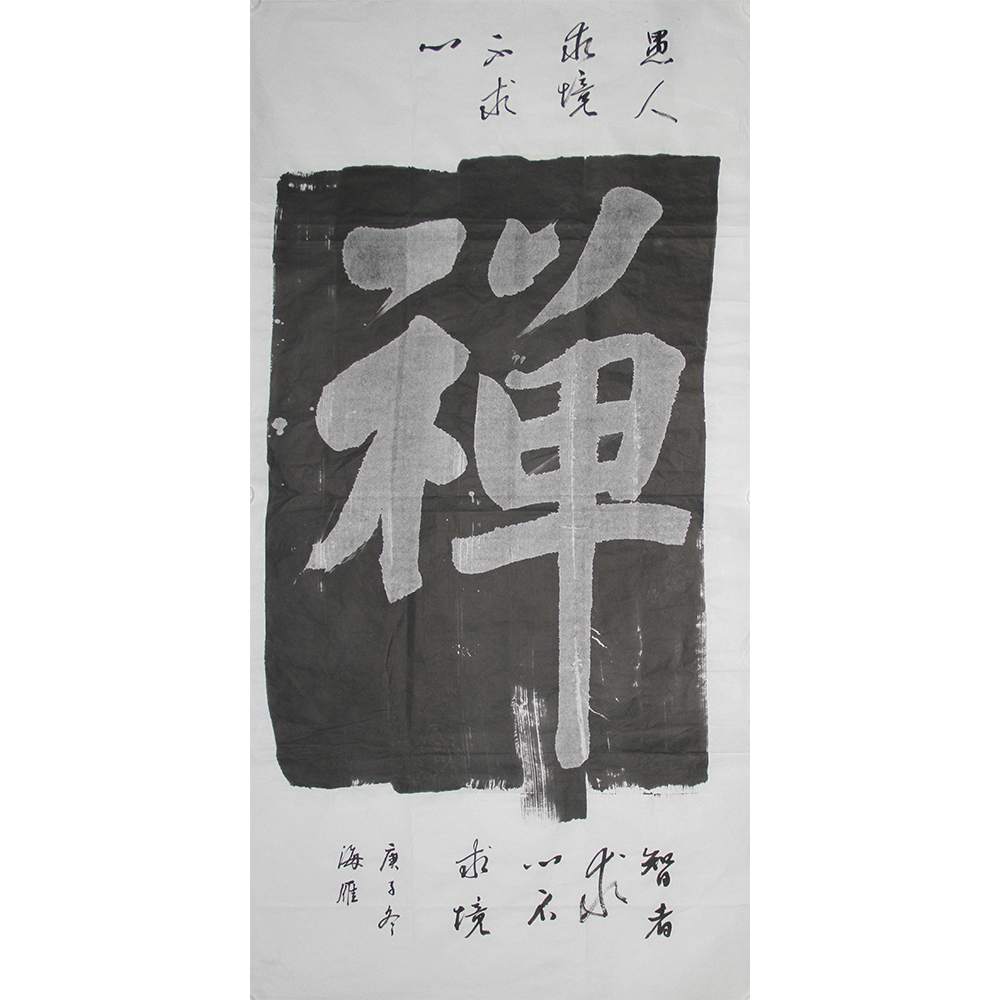 愚人
求境
不求
心
禅
智者
求
心不
求境
庚子冬
海雁